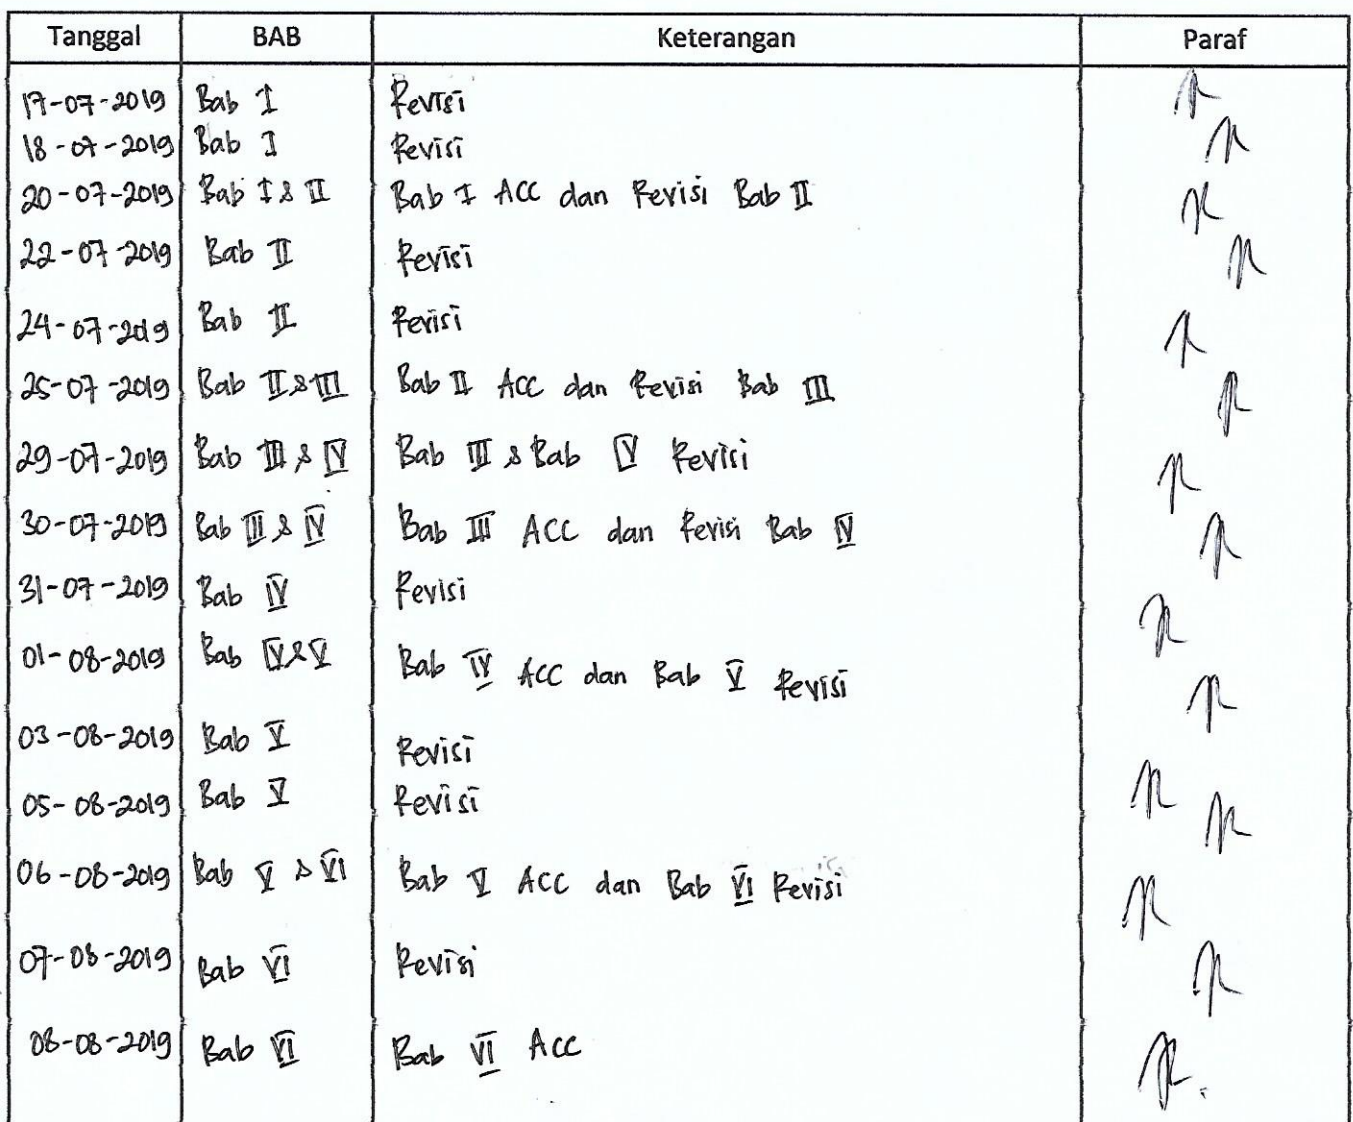 Tanggal BAB Keterangan Paraf
17-07-2019 Bab I Revisi
18-07-2019 Bab I Revisi
20-07-2019 Bab I & II Bab I ACC dan Revisi Bab II
22-07-2019 Bab II Revisi
24-07-2019 Bab II Revisi
25-07-2019 Bab II & III Bab II ACC dan Revisi Bab III
29-07-2019 Bab III & IV Bab III & Bab IV Revisi
30-07-2019 Bab III & IV Bab III ACC dan Revisi Bab IV
31-07-2019 Bab IV Revisi
01-08-2019 Bab IV & V Bab IV ACC dan Bab V Revisi
03-08-2019 Bab V Revisi
05-08-2019 Bab V Revisi
06-08-2019 Bab V & VI Bab V ACC dan Bab VI Revisi
07-08-2019 Bab VI Revisi
08-08-2019 Bab VI Bab VI Acc